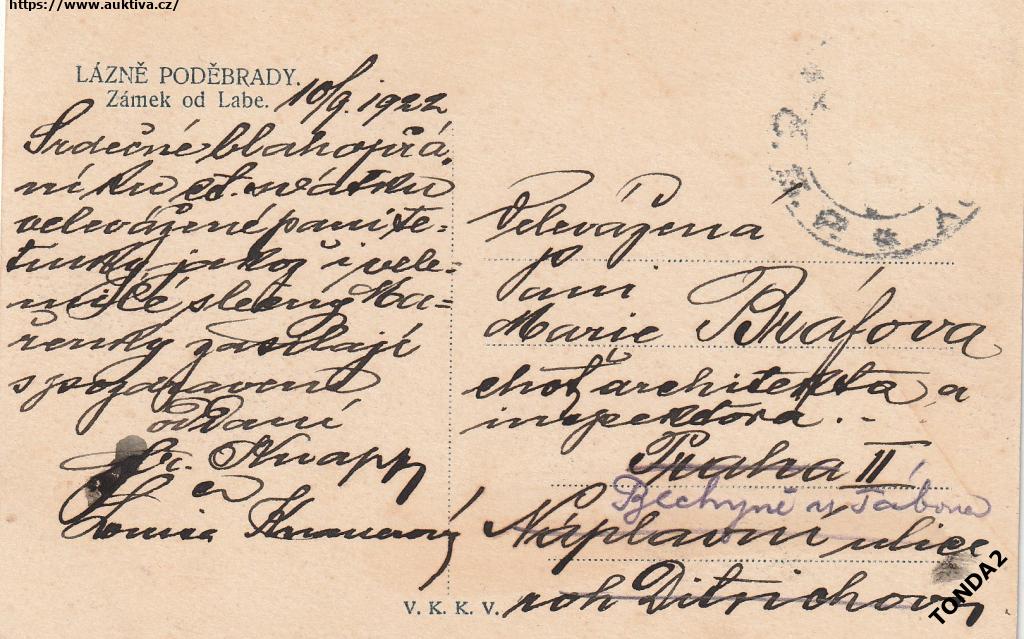 https://www.auktiva.cz/
LÁZNĚ PODĚBRADY.
Zámek od Labe.
10/9. 1922
Srdečné blahopřá
ní ku ct. svátku
velevážené paní te-
tinky, jakož i vele-
milé slečny Ma-
řenky zasílají
s pozdravem
oddaní
Fr. Knapp
a
Louisa
Velevážená
paní
Marie Bráfova
choť architekta a
inspektora..
Praha II
Bechyně u Tábora
Náplavní ulice
roh Ditrichovy
V. K. K. V.
TONDA2